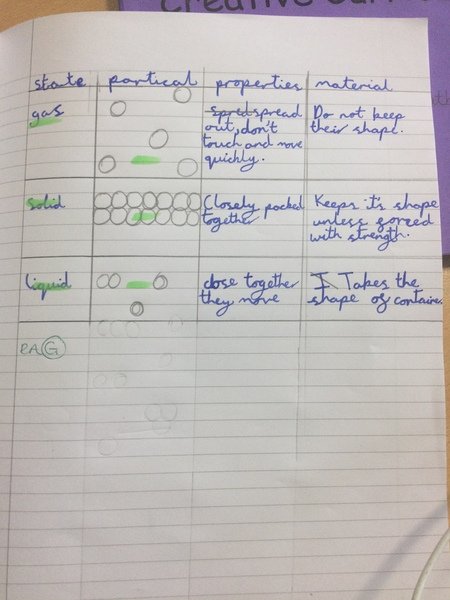 Creative Curri
state partical properties material
gas
sprd spread
out, don't
touch and move
quickly.
Do not keep
their shape.
Solid
Closely packed
together
Keeps it's shape
unless forced
with strength.
liquid
close together
they move
I Takes the
shape of container.
RAG